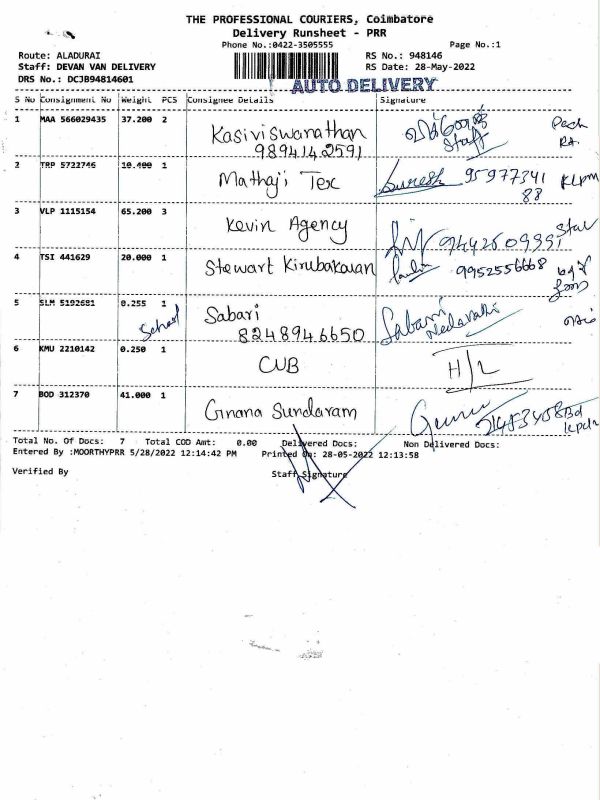 THE PROFESSIONAL COURIERS, Coimbatore
Delivery Runsheet - PRR
Phone No.:0422-3505555
Page No.:1
Route: ALADURAI
RS No.: 948146
Staff: DEVAN VAN DELIVERY
RS Date: 28-May-2022
DRS No.: DCJB94814601
AUTO DELIVERY
S No Consignment No Weight PCS Consignee Details Signature
1 MAA 566029435 37.200 2
Kasiviswanathan
9894142591
Staff
2 TRP 5722746 10.400 1
Mathaji Tex
Suresh 95977341
88
KLPM
3 VLP 1115154 65.200 3
Kevin Agency
4 TSI 441629 20.000 1
Stewart Kirubakauan
9952556668
5 SLM 5192681 0.255 1
School
Sabari
8248946650
Sabari
6 KMU 2210142 0.250 1
CUB
H/L
7 BOD 312370 41.000 1
Gnana Sundaram
Total No. Of Docs: 7 Total COD Amt: 0.00 Delivered Docs: Non Delivered Docs:
Entered By :MOORTHYPRR 5/28/2022 12:14:42 PM Printed On: 28-05-2022 12:13:58
Verified By
Staff Signature